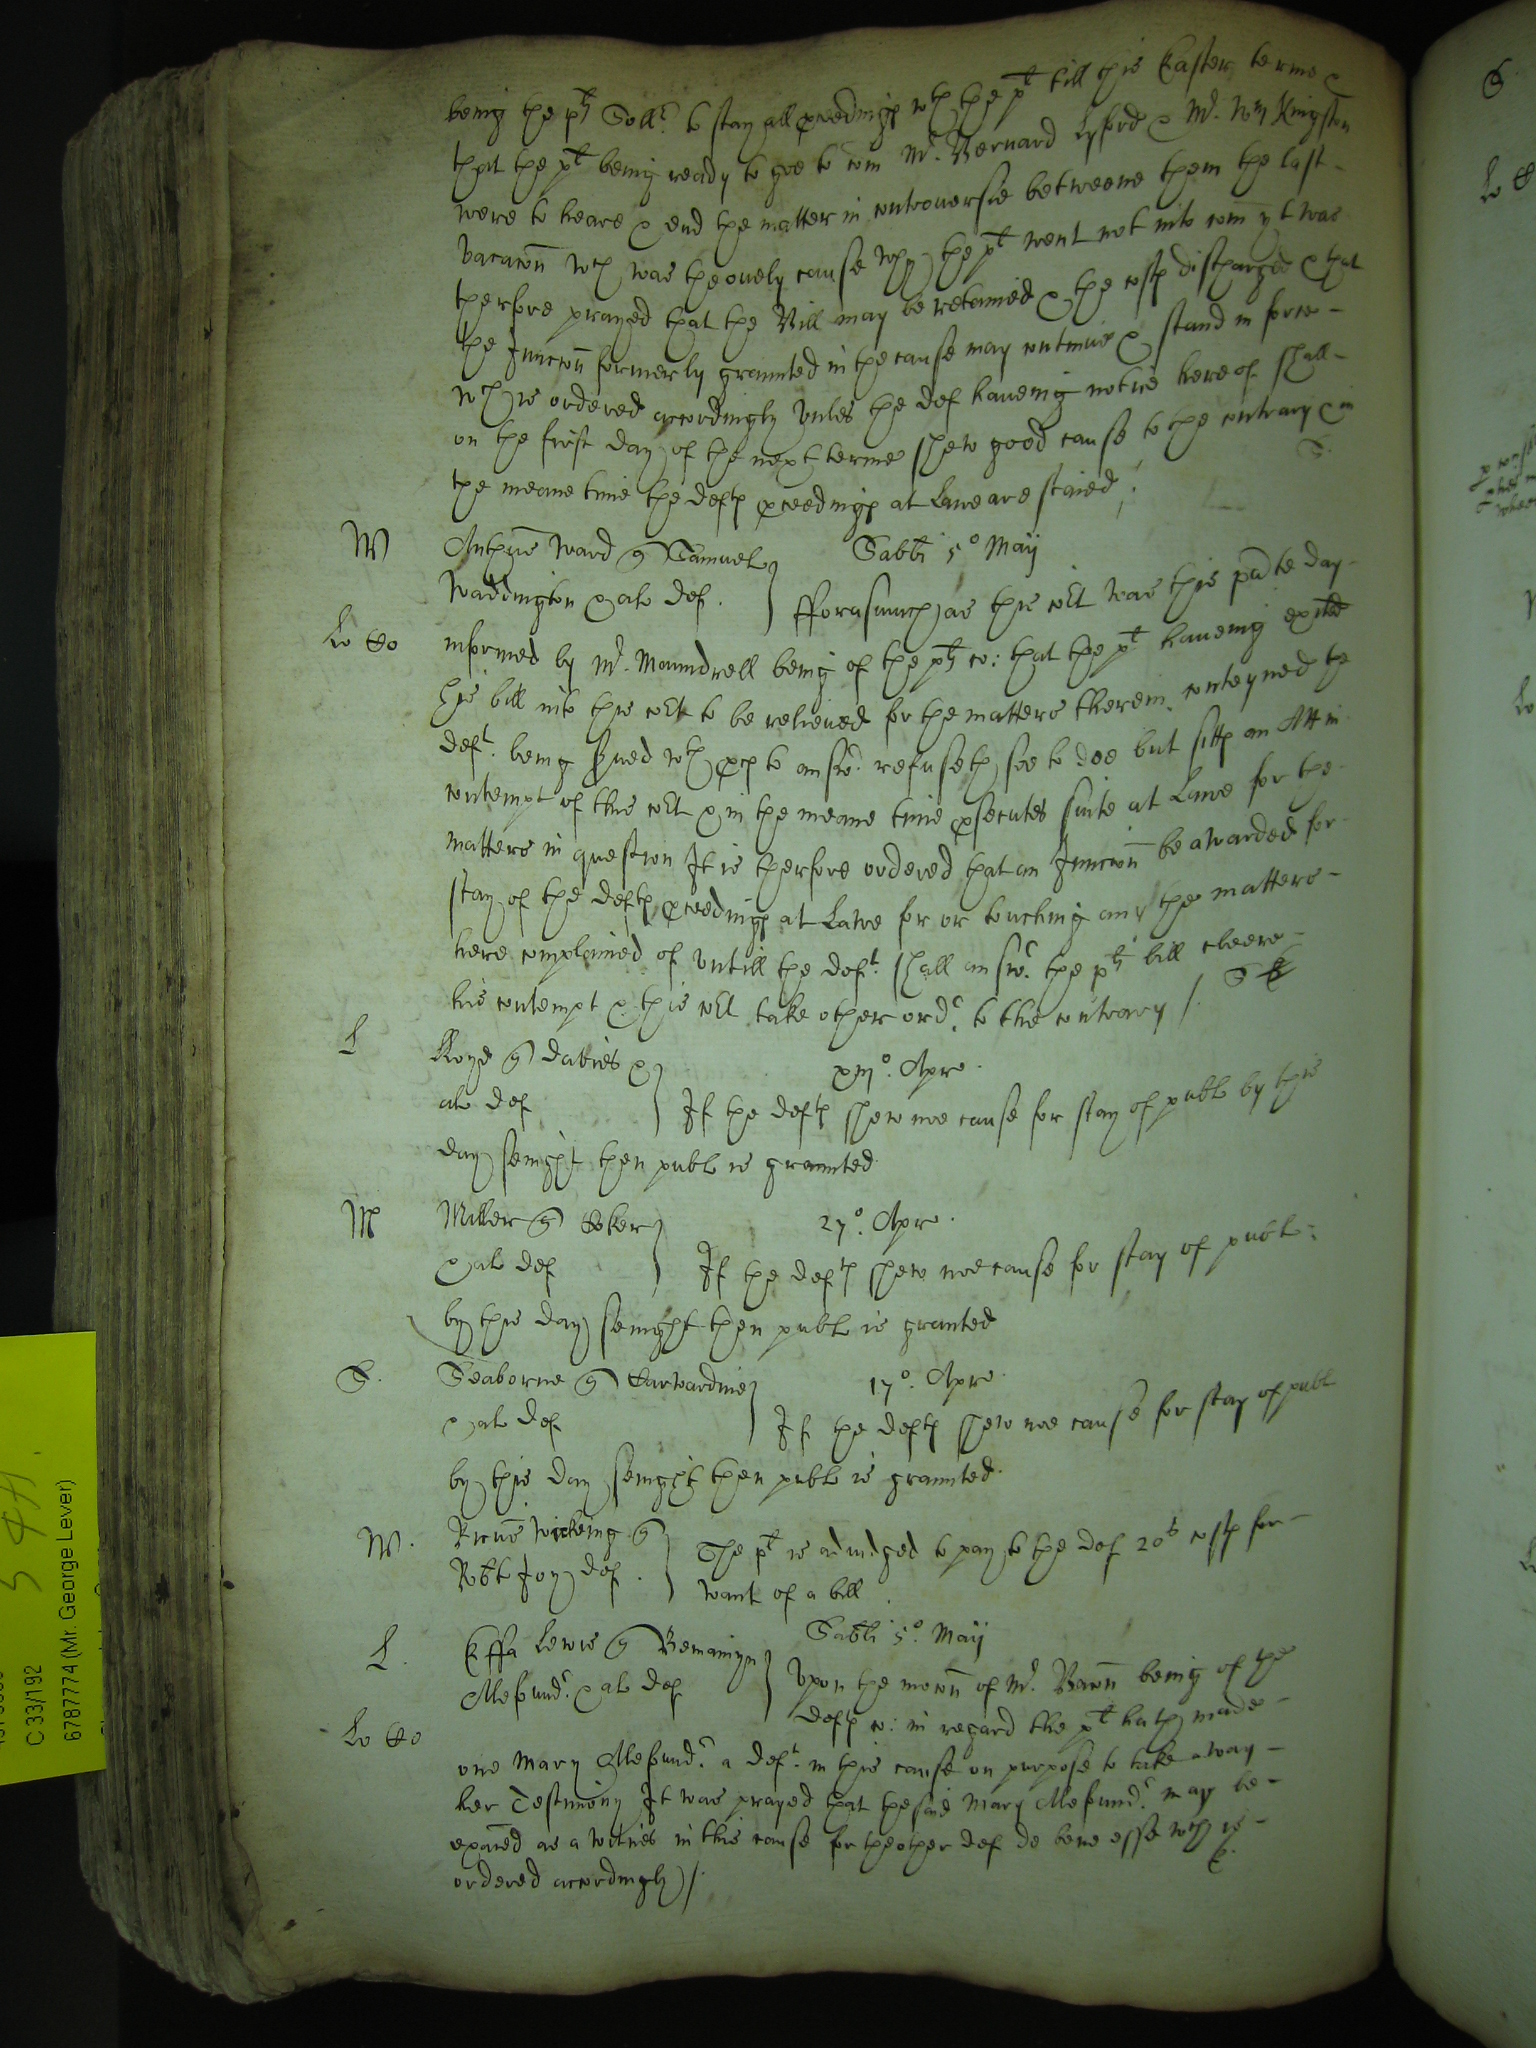 being the pl^ts Soll^r to stay all pceedings w^th the p^t till this Easter terme &
that the p^t being ready to goe to com M^r. Bernard Lyford & M^r. W^m Kingston
were to heare & end the matter in controversie betweene them the last
vacacon w^ch was the onely cause why the p^t went not into com yt was
therfore prayed that the Bill may be retained & the costs discharged & that
the Iniuncon formerly graunted in the cause may continue & stand in force
w^ch is ordered accordingly vnles the def haueing notice hereof shall
on the first day of the next terme shew good cause to the contrary & in
the meane time the defts pceedings at Lawe are staied
S.
W
Ward q Samuel
Waddington & alo def.
Sabbti 5^o Maij
fforasmuch as this co^rt was this pnte day
Lo Co
informed by M^r. Maundrell being of the pl^ts co: that the p^t haueing exited
his bill into this co^rt to be relieued for the matters therein conteyned the
def^t. being serued w^th pces to answ^r. refuseth soe to doe but sitts an Att in
contempt of this co^rt & in the meane time psecutes suite at Lawe for the
matters in question It is therfore ordered that an Iniuncon be awarded for
stay of the defts pceedings at Lawe for or touching any the matters
here complained of vntill the def^t. shall answ^r. the pl^ts bill cleere
his contempt & this co^rt take other ord^r. to the contrary /.
S
L
q Davies &
alo def
xiii^o. Apre.
If the defts shew noe cause for stay of publ by this
day senight then publ is graunted
M
Miller q Coker
& alo def
27^o. Apre.
If the defts shew noe cause for stay of publ:
by this day senight then publ is graunted
S.
Seaborne q Carwardine
& alo def
17^o. Apre.
If the defts shew noe cause for stay of publ
by this day senight then publ is graunted.
W.
Ricus Wickeing q
Robt Joy def.
The p^t is adiudged to pay to the def 20^s costs for
want of a bill.
L.
Effa Lewis q Bemainyn
& alo def
Sabbti 5^o. Maij
Vpon the mocon of M^r. Bacon being of the
defts co: in regard the p^t hath made
Lo Co
one Mary a def^t. in this cause on purpose to take away
her Testimony It was prayed that the said Mary may be
exaied as a witnes in this cause for the other def de bene esse w^ch is
ordered accordingly /.
C 33/192
6787774 (Mr. George Lever)